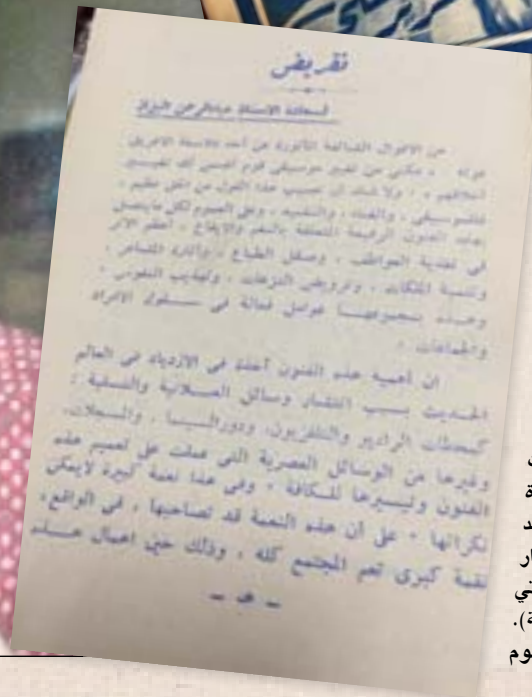 تقريض
لسعادة الاستاذ عبدالرحمن البزاز
من الاقوال الشائعة المأثورة عن أحد فلاسفة الاغريق
قوله مكنني من تغيير موسيقى قوم اضمن لك تغيير
أخلاقهم ولا شك أن نصيب هذا القول من الحق عظيم ،
فللموسيقى ، والغناء ، والنشيد ، وعلى العموم لكل ما يتصل
بهذه الفنون الرفيعة المتعلقة بالنغم والايقاع ، أعظم الاثر
في تغذية العواطف ، وصقل الطباع ، واثارة المشاعر ،
وتنمية الملكات ، وترويض النزعات ، وتهذيب النفوس ،
وهذه بمجموعها عوامل فعالة في سلوك الافراد
والجماعات .
ان أهمية هذه الفنون آخذة في الازدياد في العالم
الحديث بسبب انتشار وسائل العلانية والتسلية :
كمحطات الراديو والتلفزيون، ودور السينما ، والمسجلات،
وغيرها من الوسائل العصرية التي عملت على تعميم هذه
الفنون وتيسيرها للكافة . وفي هذا نعمة كبيرة لايمكن
نكرانها . على أن هذه النعمة قد تصاحبها ، في الواقع،
نقمة كبرى تعم المجتمع كله ، وذلك حين اهمال
ـ هـ ـ
ة
د
ار
ني
ة).
وم